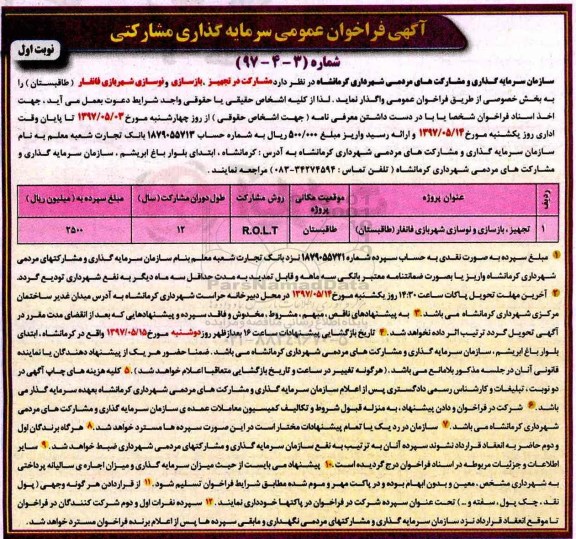 آگهی فراخوان عمومی سرمایه گذاری مشارکتی
نوبت اول
شماره (۳ - ۴ - ۹۷)
سازمان سرمایه گذاری و مشارکت های مردمی شهرداری کرمانشاه در نظر دارد مشارکت در تجهیز ، بازسازی و نوسازی شهربازی فانفار ( طاقبستان ) را
به بخش خصوصی از طریق فراخوان عمومی واگذار نماید . لذا از کلیه اشخاص حقیقی یا حقوقی واجد شرایط دعوت بعمل می آید ، جهت
اخذ اسناد فراخوان شخصا یا با در دست داشتن معرفی نامه ( جهت اشخاص حقوقی ) از روز چهارشنبه مورخ ۱۳۹۷/۰۵/۰۳ تا پایان وقت
اداری روز یکشنبه مورخ ۱۳۹۷/۰۵/۱۴ و ارائه رسید واریز مبلغ ۵۰۰/۰۰۰ ریال به شماره حساب ۱۸۷۹۰۵۵۷۱۳ بانک تجارت شعبه معلم به نام
سازمان سرمایه گذاری و مشارکت های مردمی شهرداری کرمانشاه به آدرس : کرمانشاه ، ابتدای بلوار باغ ابریشم ، سازمان سرمایه گذاری و
مشارکت های مردمی شهرداری کرمانشاه ( تلفن تماس : ۳۴۲۷۴۵۹۴-۰۸۳ ) مراجعه نمایند .
ردیف عنوان پروژه موقعیت مکانی پروژه روش مشارکت طول دوران مشارکت ( سال ) مبلغ سپرده به ( میلیون ریال )
۱ تجهیز ، بازسازی و نوسازی شهربازی فانفار (طاقبستان) طاقبستان R.O.L.T ۱۲ ۲۵۰۰
۱ مبلغ سپرده به صورت نقدی به حساب سپرده شماره ۱۸۷۹۰۵۵۷۲۱ نزد بانک تجارت شعبه معلم بنام سازمان سرمایه گذاری و مشارکتهای مردمی
شهرداری کرمانشاه واریز یا بصورت ضمانتنامه معتبر بانکی سه ماهه و قابل تمدید به مدت حداقل سه ماه دیگر به نفع شهرداری تودیع گردد.
۲ آخرین مهلت تحویل پاکات ساعت ۱۴:۳۰ روز یکشنبه مورخ ۱۳۹۷/۰۵/۱۴ در محل دبیرخانه حراست شهرداری کرمانشاه به آدرس میدان غدیر ساختمان
مرکزی شهرداری کرمانشاه می باشد. ۳ به پیشنهادهای ناقص، مبهم، مشروط، مخدوش و فاقد سپرده و پیشنهادهایی که بعد از انقضای مدت مقرر در
آگهی تحویل گردد ترتیب اثر داده نخواهد شد. ۴ تاریخ بازگشایی پیشنهادات ساعت ۱۶ بعدازظهر روز دوشنبه مورخ ۱۳۹۷/۰۵/۱۵ واقع در کرمانشاه، ابتدای
بلوار باغ ابریشم، سازمان سرمایه گذاری و مشارکت های مردمی شهرداری کرمانشاه می باشد. ضمنا حضور هر یک از پیشنهاد دهندگان یا نماینده
قانونی آنان در جلسه مذکور بلامانع می باشد. (هرگونه تغییر در ساعت و تاریخ بازگشایی متعاقبا اعلام خواهد شد) . ۵ کلیه هزینه های چاپ آگهی در
دو نوبت ، تبلیغات و کارشناس رسمی دادگستری پس از اعلام سازمان سرمایه گذاری و مشارکت های مردمی شهرداری کرمانشاه بعهده سرمایه گذار می
باشد. ۶ شرکت در فراخوان و دادن پیشنهاد ، به منزله قبول شروط و تکالیف کمیسیون معاملات عمده ی سازمان سرمایه گذاری و مشارکت های مردمی
شهرداری کرمانشاه می باشد. ۷ سازمان در رد یک یا تمام پیشنهادات مختار است در این صورت سپرده ها مسترد خواهد شد. ۸ هرگاه برندگان اول
و دوم حاضر به انعقاد قرارداد نشوند سپرده آنان به ترتیب به نفع سازمان سرمایه گذاری و مشارکتهای مردمی شهرداری ضبط خواهد شد. ۹ سایر
اطلاعات و جزئیات مربوطه در اسناد فراخوان درج گردیده است. ۱۰ پیشنهاد می بایست از حیث میزان سرمایه گذاری و میزان اجاره ی سالیانه پرداختی
به شهرداری مشخص ، معین و بدون ابهام بوده و در پاکت مهر و موم شده مطابق شرایط فراخوان تسلیم شود. ۱۱ از قراردادن هر گونه وجهی ( پول
نقد ، چک پول ، سفته و ... ) تحت عنوان سپرده شرکت در فراخوان در پاکتها خودداری نمایند. ۱۲ سپرده نفرات اول و دوم شرکت کنندگان در فراخوان
تا موقع انعقاد قرارداد نزد سازمان سرمایه گذاری و مشارکتهای مردمی نگهداری و مابقی سپرده ها پس از اعلام برنده فراخوان مسترد خواهد شد .